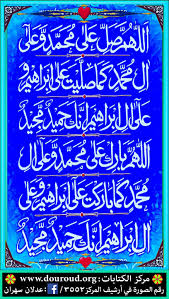 اللهم صل على محمد وعلى
آل محمد كما صليت على إبراهيم و
على آل إبراهيم إنك حميد مجيد
اللهم بارك على محمد وعلى آل
محمد كما باركت على إبراهيم وعلى
آل إبراهيم إنك حميد مجيد
مركز الكتابات : www.douroud.org
رقم الصورة في أرشيف المركز ٣٥٥٢ / f : عدلان سهران